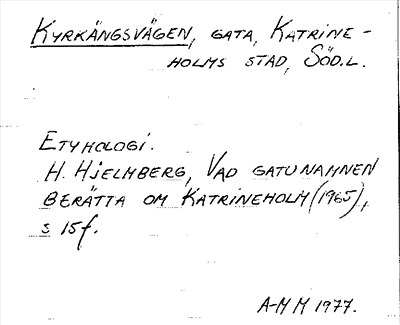 KYRKÄNGSVÄGEN, GATA, KATRINE-
HOLMS STAD, SÖD.L.
ETYMOLOGI.
H. HJELMBERG, VAD GATUNAMNEN
BERÄTTA OM KATRINEHOLM (1965),
s 15f.
A-M M 1977.